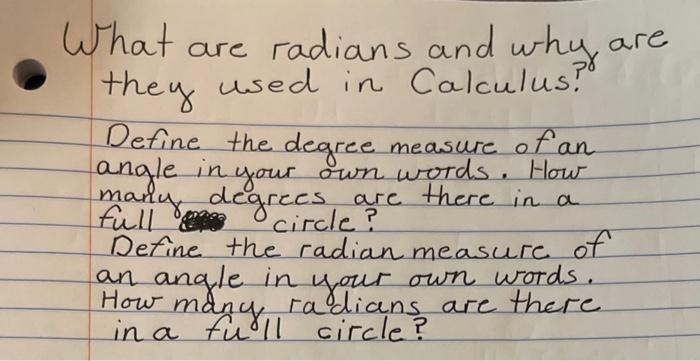 What are radians and why are
they used in Calculus?
Define the degree measure of an
angle in your own words. How
many degrees are there in a
full circle?
Define the radian measure of
an angle in your own words.
How many radians are there
in a full circle?